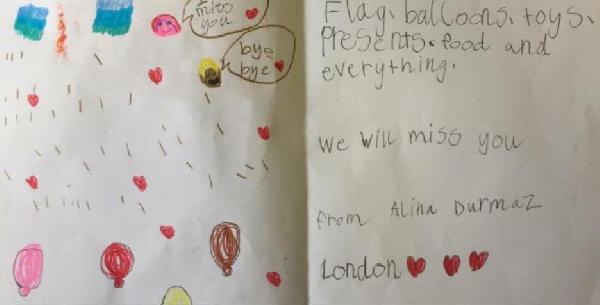 miss
you
bye
bye
Flag. balloons. toys.
Presents. food and
everything.
We will miss you
from Alina Durmaz
London